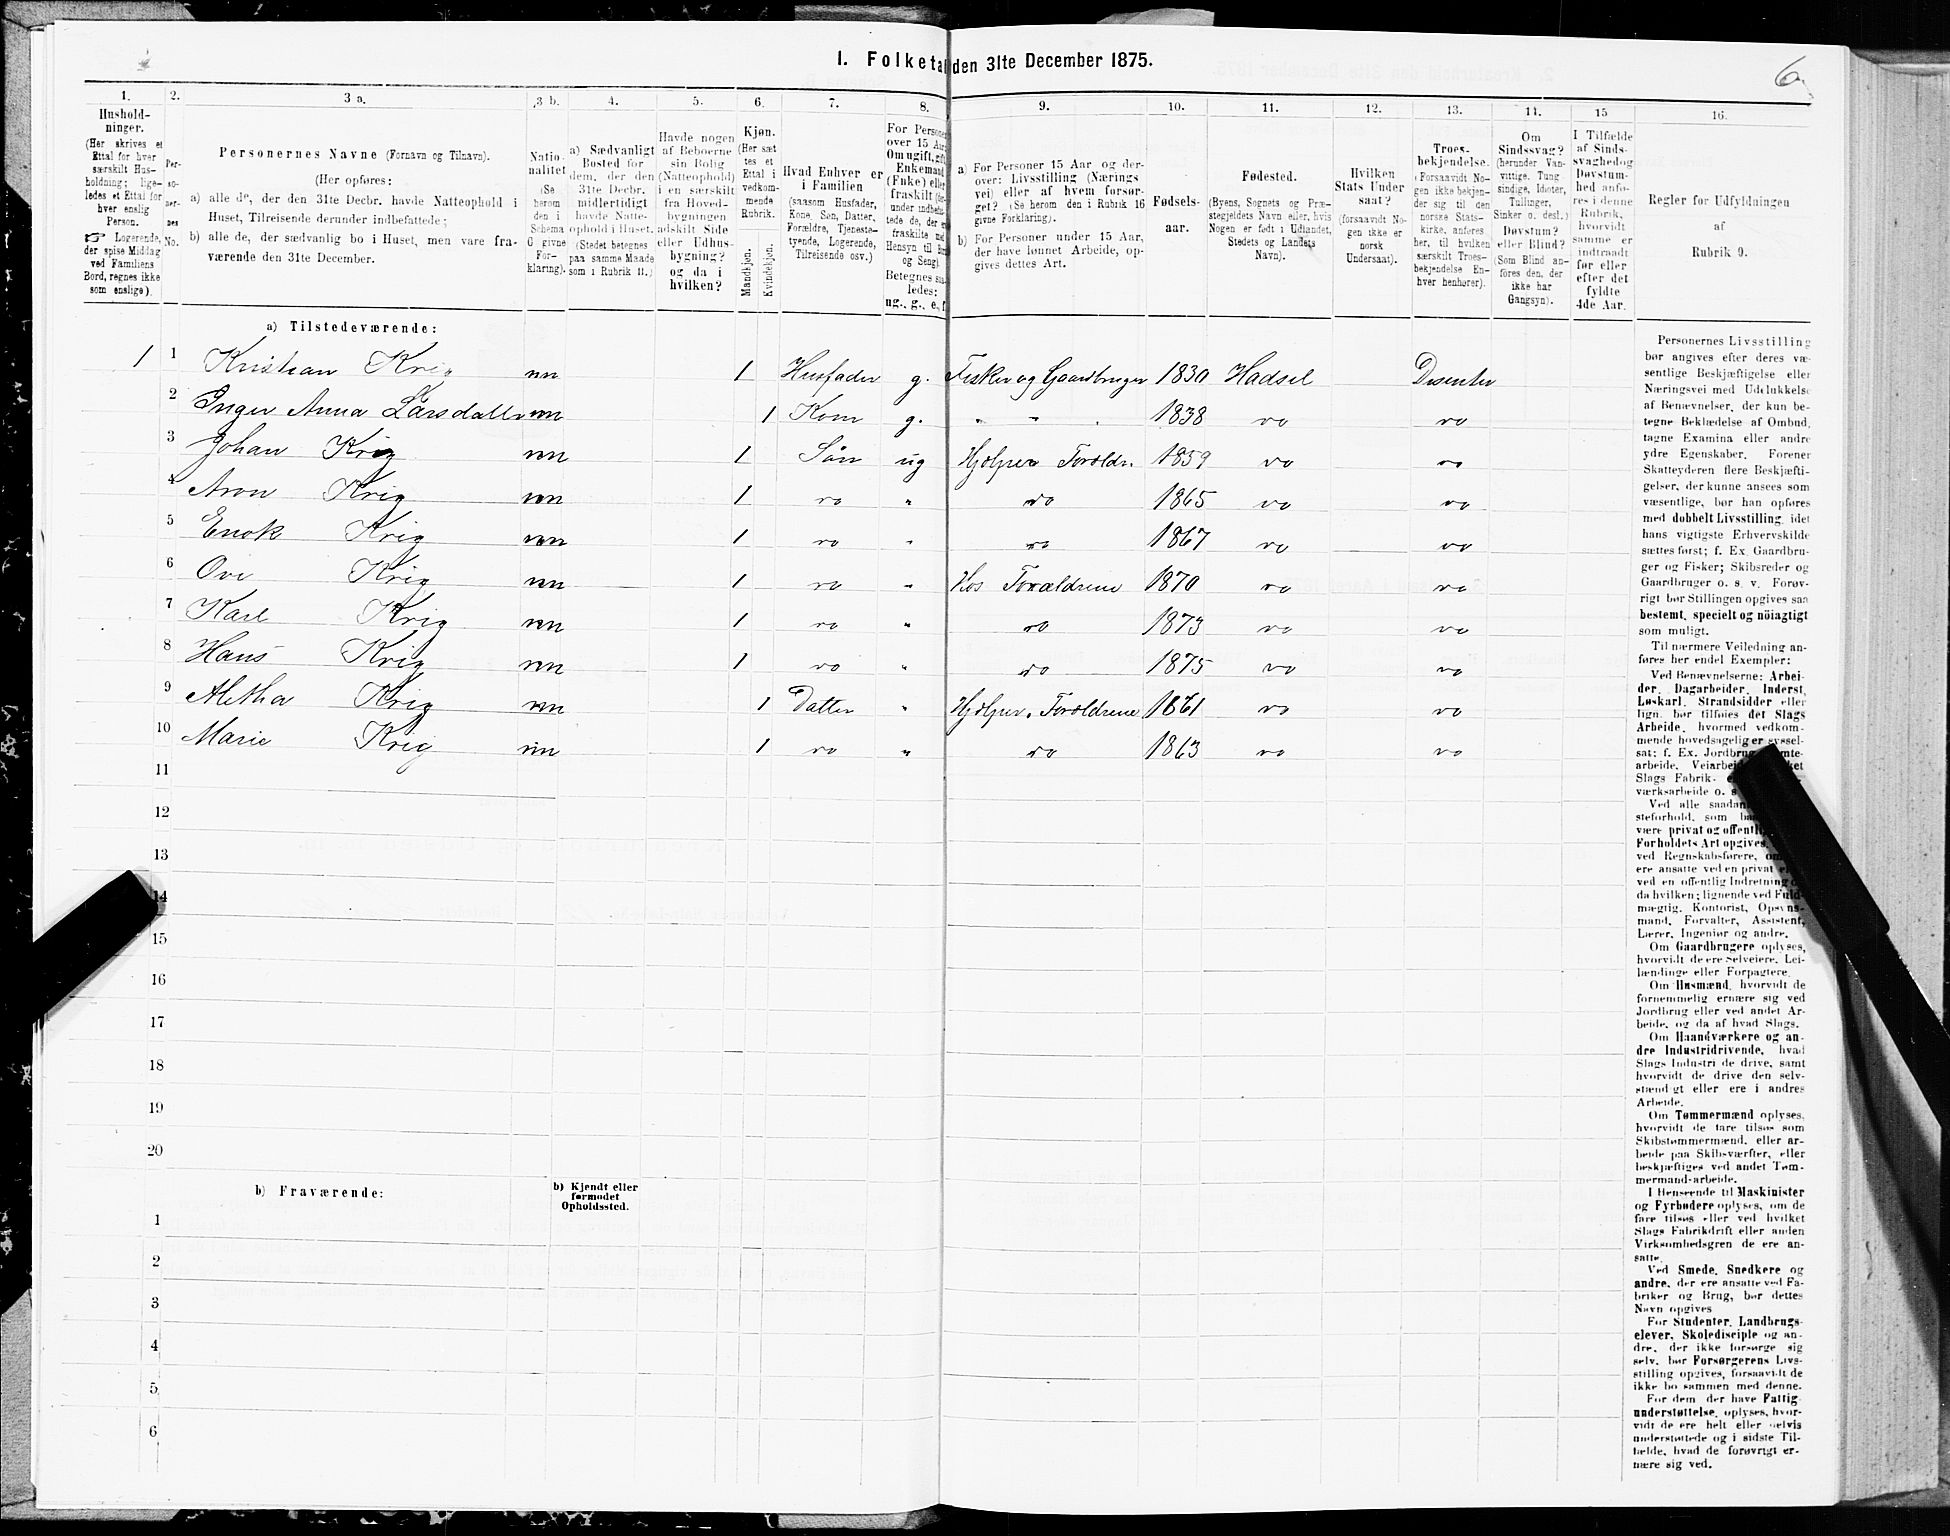 I. Folketal den 31te December 1875.
6
1.
Hushold-
ninger.
(Her skrives et
Ettal for hver
særskilt Hus-
holdning; lige-
ledes et Ettal for
hver enslig
Person.
☞ Logerende,
der spise Middag
ved Familiens
Bord, regnes ikke
som enslige).
2.
Per-
so-
ner-
nes
No.
3 a.
Personernes Navne (Fornavn og Tilnavn).
(Her opføres:
a) alle de, der den 31te Decbr. havde Natteophold i
Huset, Tilreisende derunder indbefattede;
b) alle de, der sædvanlig bo i Huset, men vare fra-
værende den 31te December.
3 b.
Natio-
nalitet
(Se
herom
den i
Schema
G givne
For-
klaring).
4.
a) Sædvanligt
Bosted for
dem, der den
31te Decbr.
midlertidigt
havde Natte-
ophold i Huset.
(Stedet betegnes
paa samme Maade
som i Rubrik B.)
5.
Havde nogen
af Beboerne
sin Bolig
(Natteophold)
i en særskilt
fra Hoved-
bygningen
adskilt Side
eller Udhus-
bygning?
og da i
hvilken?
6.
Kjøn.
(Her sæt
tes et
Ettal i
vedkom-
mende
Rubrik.
Mandkjøn.
Kvindekjøn.
7.
Hvad Enhver er
i Familien
(saasom Husfader,
Kone, Søn, Datter,
Forældre, Tjeneste-
tyende, Logerende,
Tilreisende osv.)
8.
For Personer
over 15 Aar:
Om ugift, gift,
Enkemand
(Enke) eller
fraskilt
Hensyn til Bord
og Seng).
Betegnes saa-
ledes:
ug., g., e., f.
9.
a) For Personer 15 Aar og der-
over: Livsstilling (Nærings
vei) eller af hvem forsør-
get? (Se herom den i Rubrik 16
givne Forklaring).
b) For Personer under 15 Aar,
der have lønnet Arbeide, op-
gives dettes Art.
10.
Fødsels-
aar.
11.
Fødested.
(Byens, Sognets og Præ-
stegjeldets Navn eller, hvis
Nogen er født i Udlandet,
Stedets og Landets
Navn).
12.
Hvilken
Stats Under
saat?
(forsaavidt No-
gen ikke er
norsk
Undersaat).
13.
Troes-
bekjendelse.
(Forsaavidt No-
gen ikke bekjen-
der sig til den
norske Stats-
kirke, anføres
her, til hvilken
særskilt Troes-
bekjendelse En-
hver henhører).
14.
Om
Sindssvag?
(herunder Van-
vittige, Tung-
sindige, Idioter,
Tullinger,
Sinker o. desl.)
Døvstum?
eller Blind?
(Som Blind an-
føres den, der
ikke har
Gangsyn).
15
I Tilfælde
af Sinds-
svaghed og
Døvstum-
hed anfø-
res i denne
Rubrik,
hvorvidt
samme er
indtraadt
før eller
efter det
fyldte
4de Aar.
16.
Regler for Udfyldningen
af
Rubrik 9.
a) Tilstedeværende:
1 1 Kristian Krig nn 1 Husfader g. Fisker og Gaardbruger 1830 Hadsel Desenter
2 Inger Anna Larsdatter nn 1 Kone g. " " 1838 do do
3 Johan Krig nn 1 Søn ug Hjelper Foreldr. 1859 do do
4 Aron Krig nn 1 do " do 1865 do do
5 Enok Krig nn 1 do " do 1867 do do
6 Ove Krig nn 1 do " Hos Foræeldrene 1870 do do
7 Karl Krig nn 1 do " do 1873 do do
8 Hans Krig nn 1 do " do 1875 do do
9 Aletha Krig nn 1 Datter " Hjelper Foreldrene 1861 do do
10 Marie Krig nn 1 do " do 1863 do do
11
12
13
14
15
16
17
18
19
20
b) Fraværende:
b) Kjendt eller
formodet
Opholdssted.
1
2
3
4
5
6
Personernes Livsstilling
bør angives efter deres væ-
sentlige Beskjæftigelse eller
Næringsvei med Udelukkelse
af Benævnelser, der kun be-
tegne Beklædelse af Ombud,
tagne Examina eller andre
ydre Egenskaber. Forener
Skatteyderen flere Beskjæfti-
gelser, der kunne ansees som
væsentlige, bør han opføres
med dobbelt Livsstilling, idet
hans vigtigste Erhvervskilde
sættes først; f. Ex. Gaardbru-
ger og Fisker; Skibsreder og
Gaardbruger o. s. v. Forøv-
rigt bør Stillingen opgives saa
bestemt, specielt og nöiagtigt
som muligt.
Til nærmere Veiledning an-
føres her endel Exempler:
Ved Benævnelserne: Arbei-
der, Dagarbeider, Inderst,
Løskarl, Strandsidder eller
lign. bør tilføies det Slags
Arbeide, hvormed vedkom-
mende hovedsagelig er syssel-
sat; f. Ex. Jordbrug
arbeide, Veiarbei
Slags Fabrik-
værksarbeide o. s
Ved alle saadan
steforhold, som
være privat og offentl
Forholdets Art opgives,
ved Regnskabsførere,
ere ansatte ved en privat
ved en offentlig Indretning
da hvilken; lignende ved Fuld-
mægtig, Kontorist, Opsyns-
mand, Forvalter, Assistent,
Lærer, Ingeniør og andre.
Om Gaardbrugere oplyses,
hvorvidt de ere Selveiere, Lei-
lændinge eller Forpagtere.
Om Husmænd, hvorvidt de
fornemmelig ernære sig ved
Jordbrug eller ved andet Ar-
beide, og da af hvad Slags.
Om Haandværkere og an-
dre Industridrivende, hvad
Slags Industri de drive, samt
hvorvidt de drive den selv-
stændigt eller ere i andres
Arbeide.
Om Tømmermænd oplyses,
hvorvidt de fare tilsøs som
Skibstømmermænd, eller ar-
beide paa Skibsværfter, eller
beskjæftiges ved andet Tøm-
mermandarbeide.
I Henseende til Maskinister
og Fyrbødere oplyses, om de
fare tilsøs eller ved hvilket
Slags Fabrikdrift eller anden
Virksomhedsgren de ere an-
satte.
Ved Smede, Snedkere og
andre, der ere ansatte ved Fa-
briker og Brug, bør dettes
Navn opgives
For Studenter, Landbrugs-
elever, Skoledisciple og an-
dre, der ikke forsørge sig
selv, bør Forsørgerens Livs-
stilling opgives, forsaavidt de
ikke bo sammen med denne.
For dem, der have Fattig-
understøttelse, oplyses, hvor-
vidt de ere helt eller delvis
understøttede og i sidste Til-
fælde, hvad de forøvrigt er-
nære sig ved.